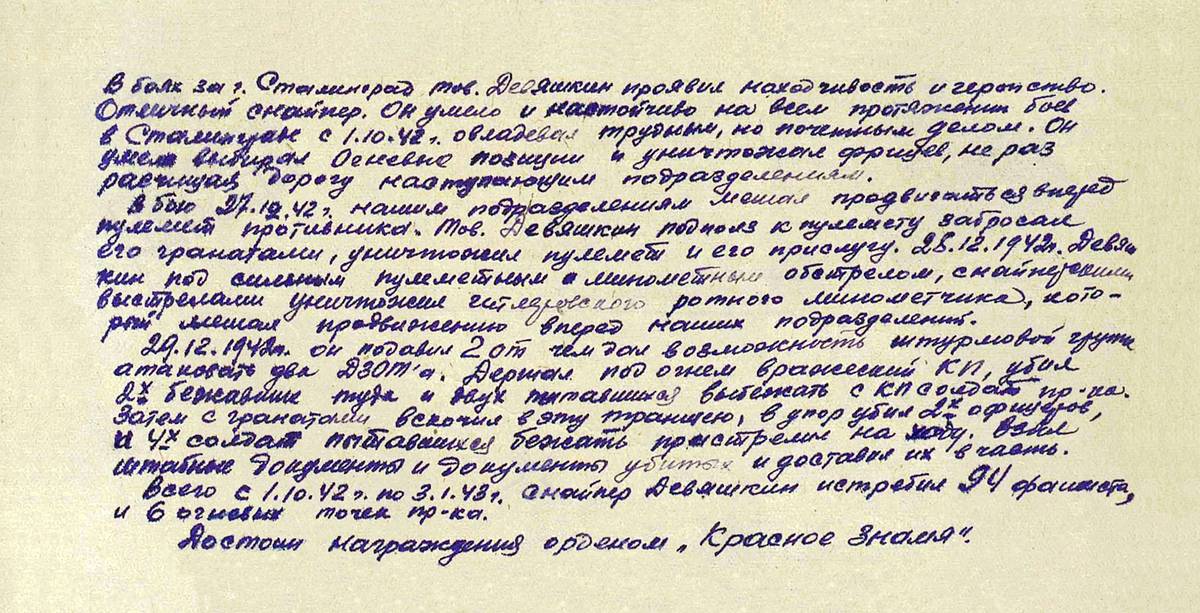 В боях за г. Сталинград тов. Девяшкин проявил находчивость и геройство.
Отличный снайпер. Он умело и настойчиво на всем протяжении боев
в Сталинграде с 1.10.42г. овладевал трудным, но почетным делом. Он
умело выбирал огневые позиции и уничтожал фрицев, не раз
расчищая дорогу наступающим подразделениям.
В бою 27.12.42г. нашим подразделениям мешал продвигаться вперед
пулемет противника. Тов. Девяшкин подполз к пулемету забросал
его гранатами, уничтожил пулемет и его прислугу. 28.12.1942г. Девяш
кин под сильным пулеметным и минометным обстрелом, снайперскими
выстрелами уничтожил гитлеровского ротного минометчика, кото-
рый мешал продвижению вперед наших подразделений.
29.12.1942г. он подавил 2 от чем дал возможность штурмовой группе
атаковать два ДЗОТ'а. Держал под огнем вражеский КП, убил
2х бежавших туда и двух пытавшихся выбежать с КП солдат пр-ка.
Затем с гранатами вскочил в эту траншею, в упор убил 2х офицеров,
и 4х солдат пытавшихся бежать пристрелил на ходу. Взял
штабные документы и документы убитых и доставил их в часть.
Всего с 1.10.42г. по 3.1.43г. снайпер Девяшкин истребил 94 фашиста,
и 6 огневых точек пр-ка.
Достоин награждения орденом „Красное Знамя".